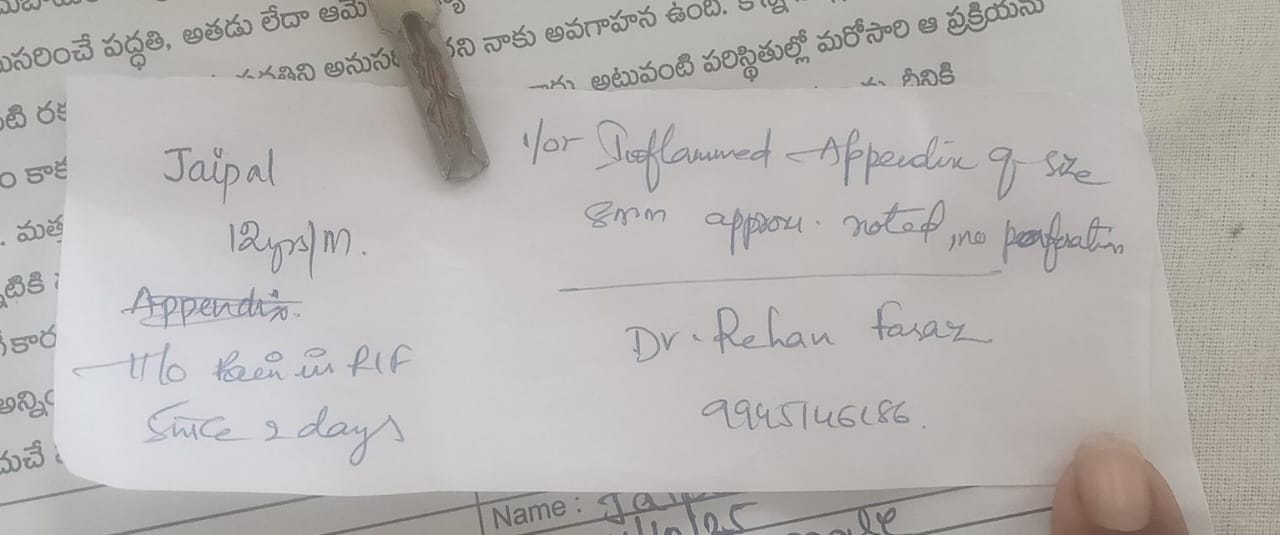 అతడు లేదా ఆమె
సరించే పద్ధతి, అతడు లేదా ఆమె
నాకు అవగాహన ఉంది.
అటువంటి పరిస్థితుల్లో మరోసారి ఆ ప్రక్రియను
దీనికి
Jaipal
12yrs/M.
Appendix.
H/O Pain in RIF
Since 2 days
1/or Inflammed Appendix of size
8mm approx. noted, no perforation
Dr. Rehan Faraz
9945146186.
Name :